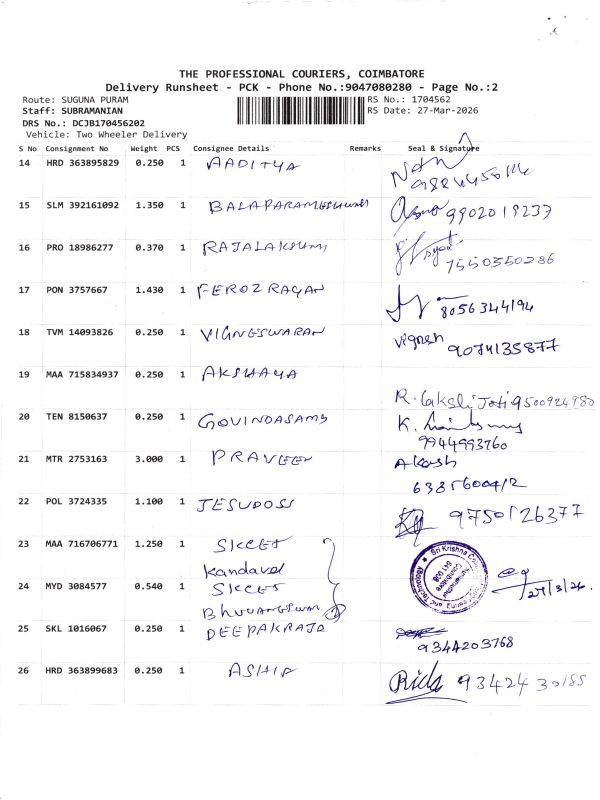 THE PROFESSIONAL COURIERS, COIMBATORE
Delivery Runsheet - PCK - Phone No.:9047080280 - Page No.:2
Route: SUGUNA PURAM RS No.: 1704562
Staff: SUBRAMANIAN RS Date: 27-Mar-2026
DRS No.: DCJB170456202
Vehicle: Two Wheeler Delivery
S No Consignment No Weight PCS Consignee Details Remarks Seal & Signature
14 HRD 363895829 0.250 1 AADITYA
15 SLM 392161092 1.350 1 BALAPARAMESHWARI 9902019237
16 PRO 18986277 0.370 1 RAJALAKSUMI
7550350286
17 PON 3757667 1.430 1 FEROZ RAGAN
8056344194
18 TVM 14093826 0.250 1 VIGNESWARAN Vignesh
9074135877
19 MAA 715834937 0.250 1 AKSHAYA
9500924980
20 TEN 8150637 0.250 1 GOVINDASAMY K.
9944993760
21 MTR 2753163 3.000 1 PRAVEEN Akash
22 POL 3724335 1.100 1 JESUDOSS 9750126377
23 MAA 716706771 1.250 1 SKCET
Kandavel
24 MYD 3084577 0.540 1 SKCET 27/3/26.
25 SKL 1016067 0.250 1 DEEPAKRAJD
9344203768
26 HRD 363899683 0.250 1 93424 30185